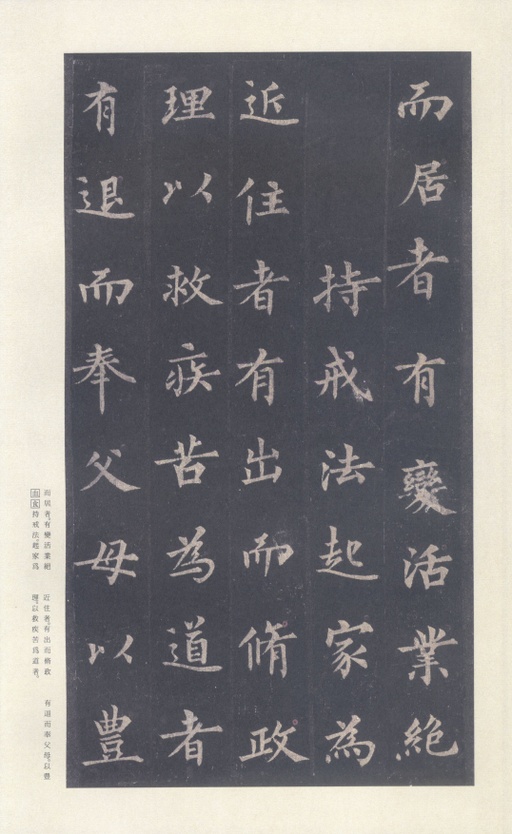 而居者有變活業絕
持戒法起家為
近住者有出而脩政
理以救疾苦為道者
有退而奉父母以豊
而居者。有變活業絕
血食持戒法。起家爲
近住者。有出而脩政
理。以救疾苦爲道者。
有退而奉父母。以豊